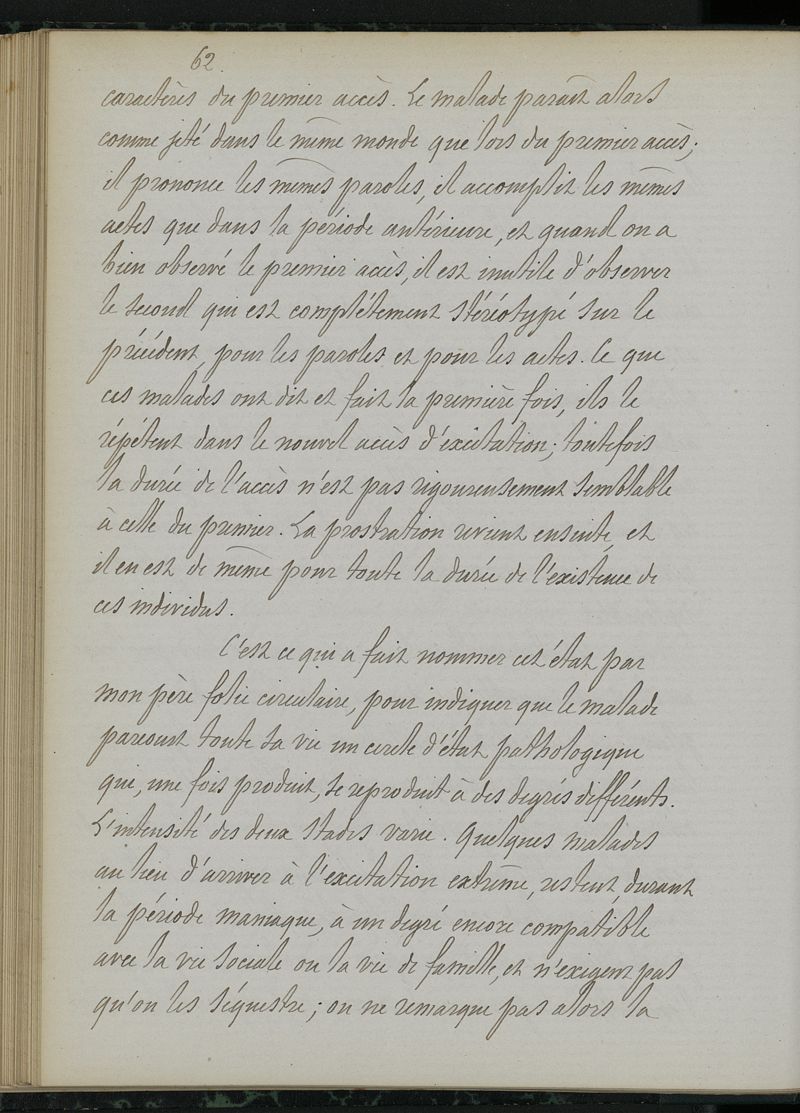 62.
caractères du premier accès. Le malade paraît alors
comme jeté dans le même monde que lors du premier accès;
il prononce les mêmes paroles, il accomplit les mêmes
actes que dans la période antérieure, et quand on a
bien observé le premier accès, il est inutile d'observer
le second qui est complétement stéréotypé sur le
précédent, pour les paroles et pour les actes. Ce que
ces malades ont dit et fait la première fois, ils le
répètent dans le nouvel accès d'excitation; toutefois
la durée de l'accès n'est pas rigoureusement semblable
à celle du premier. La prostration revient ensuite, et
il en est de même pour toute la durée de l'existence de
ces individus.
C'est ce qui a fait nommer cet état par
mon père folie circulaire, pour indiquer que le malade
parcourt toute sa vie un cercle d'état pathologique
qui, une fois produit, se reproduit à des degrés différents.
L'intensité des deux stades varie. Quelques malades
au lieu d'arriver à l'excitation extrême, restent, durant
la période maniaque, à un degré encore compatible
avec la vie sociale ou la vie de famille, et n'exigent pas
qu'on les séquestre; on ne remarque pas alors la